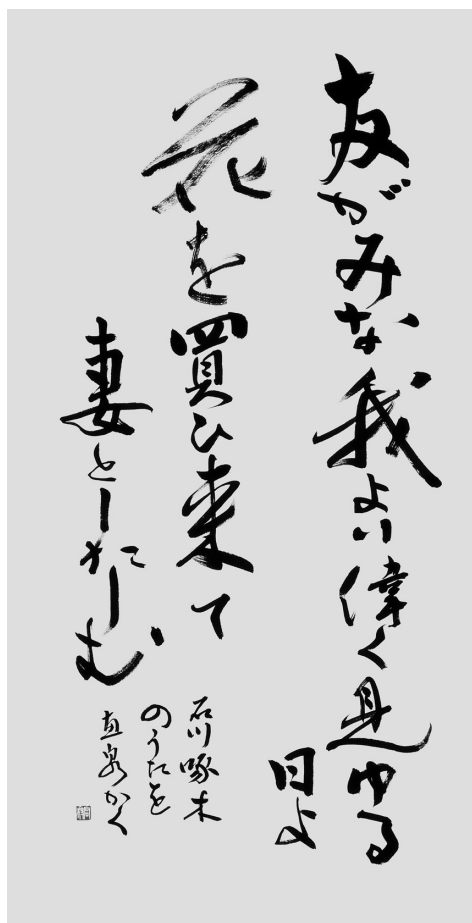 友がみな我より偉く見ゆる
日よ
花を買ひ来て
妻としたしむ
石川啄木
のうたを
直泉かく